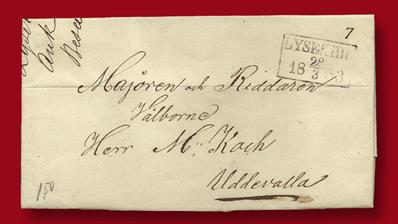 Lyse
Ank
Besv
7
LYSEKIL
28
18 3 3
Majören och Riddaren
Välborne
Herr M: Koch
Uddevalla
150